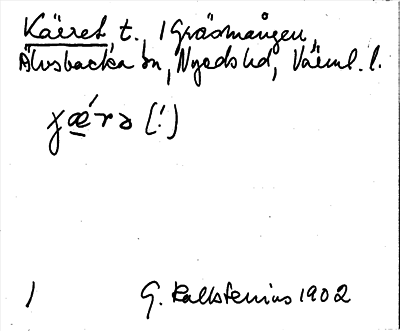 Käeret t. / Gräsmången
Älvsbacka sn, Nyeds hd, Värml. l.
(!)
/ G. Kallstenius 1902